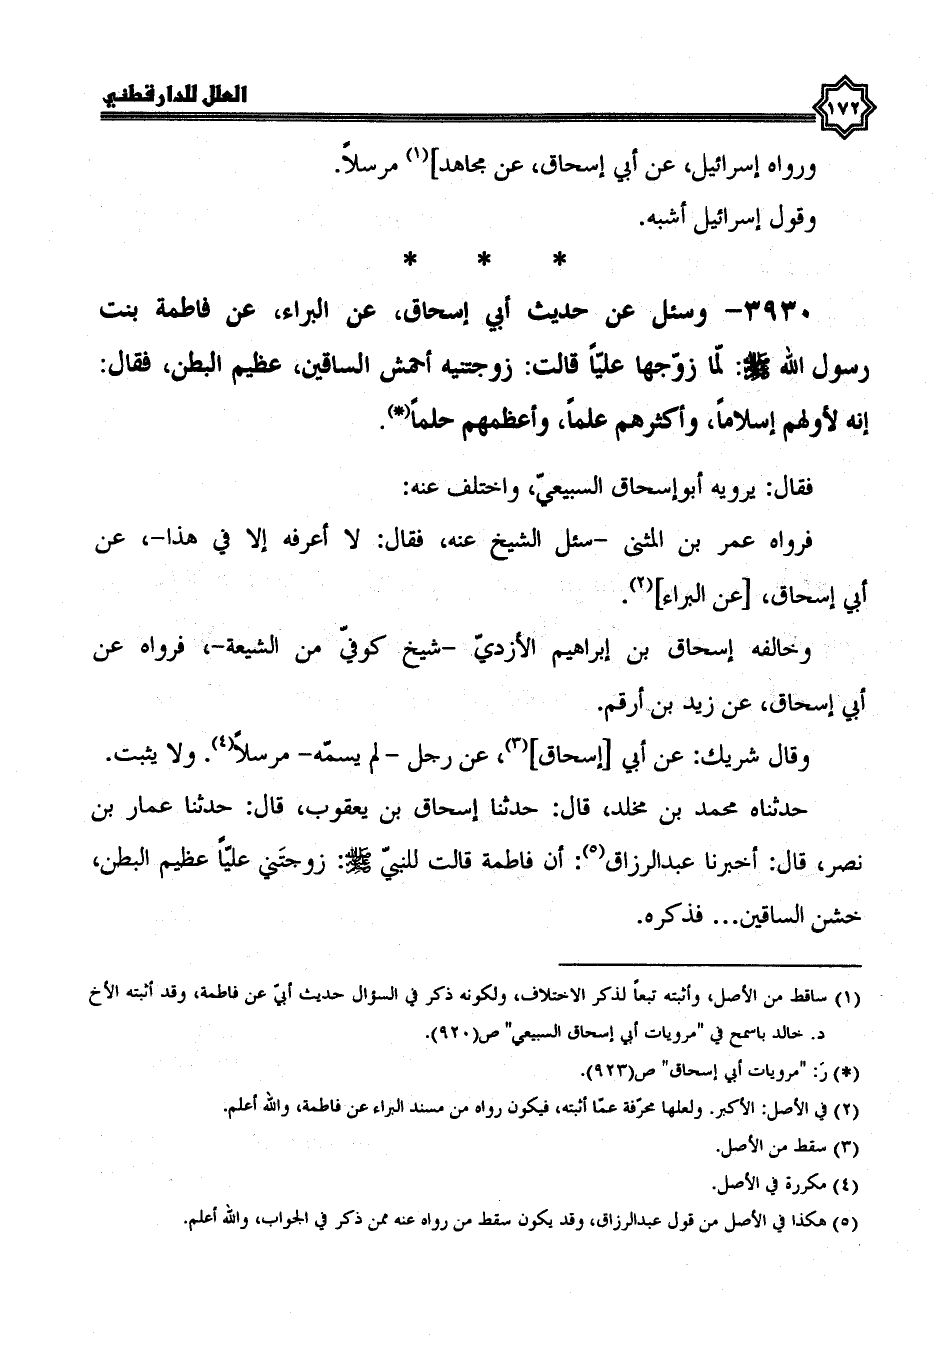 العلل للدارقطني
١٧٢
ورواه إسرائيل، عن أبي إسحاق، عن مجاهد](١) مرسلاً.
وقول إسرائيل أشبه.
* * *
٣٩٣٠- وسئل عن حديث أبي إسحاق، عن البراء، عن فاطمة بنت
رسول الله ﷺ: لمّا زوّجها عليّاً قالت: زوجتنيه أحمش الساقين، عظيم البطن، فقال:
إنه لأولهم إسلاماً، وأكثرهم علماً، وأعظمهم حلماً(*).
فقال: يرويه أبوإسحاق السبيعيّ، واختلف عنه:
فرواه عمر بن المثنى -سئل الشيخ عنه، فقال: لا أعرفه إلا في هذا-، عن
أبي إسحاق، [عن البراء](٢).
وخالفه إسحاق بن إبراهيم الأزديّ -شيخ كوفيّ من الشيعة-، فرواه عن
أبي إسحاق، عن زيد بن أرقم.
وقال شريك: عن أبي [إسحاق](٣)، عن رجل - لم يسمّه- مرسلاً(٤). ولا يثبت.
حدثناه محمد بن مخلد، قال: حدثنا إسحاق بن يعقوب، قال: حدثنا عمار بن
نصر، قال: أخبرنا عبدالرزاق(٥): أن فاطمة قالت للنبيّ ﷺ: زوجتَني عليّاً عظيم البطن،
خشن الساقين... فذكره.
(١) ساقط من الأصل، وأثبته تبعاً لذكر الاختلاف، ولكونه ذكر في السؤال حديث أبيّ عن فاطمة، وقد أثبته الأخ
د. خالد باسمح في "مرويات أبي إسحاق السبيعي" ص(٩٢٠).
(*) رَ: "مرويات أبي إسحاق" ص(٩٢٣).
(٢) في الأصل: الأكبر. ولعلها محرّفة عمّا أثبته، فيكون رواه من مسند البراء عن فاطمة، والله أعلم.
(٣) سقط من الأصل.
(٤) مكررة في الأصل.
(٥) هكذا في الأصل من قول عبدالرزاق، وقد يكون سقط من رواه عنه ممن ذكر في الجواب، والله أعلم.